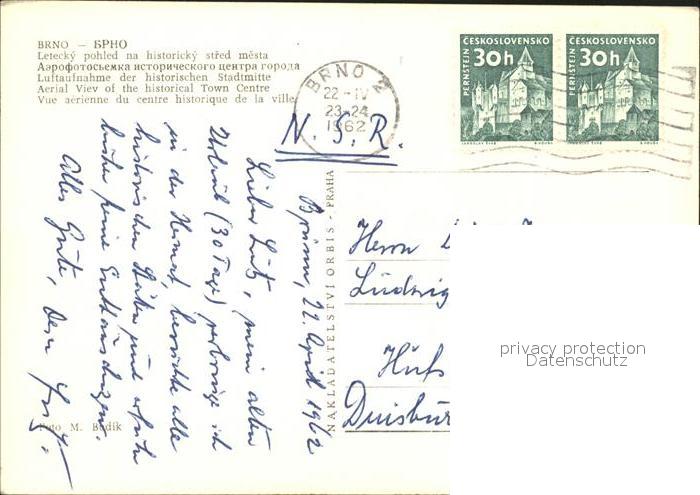 BRNO – БРНО
Letecký pohled na historický střed města
Аэрофотосъемка исторического центра города
Luftaufnahme der historischen Stadtmitte
Aerial Viev of the historical Town Centre
Vue aérienne du centre historique de la ville
BRNO 2
22-IV
23-24
1962
ČESKOSLOVENSKO
30h
PERNŠTEJN
ČESKOSLOVENSKO
30h
PERNŠTEJN
N. S. R.
Brünn, 22. April 1962
Lieber Lutz, mein alter
Urlaub (30 Tage) verbringe ich
in der Heimat, besuche alle
historischen Städte und erlebe
bisher keine Enttäuschungen.
Alles Gute, Dein
Herrn
Ludwig
Duisbur
NAKLADATELSTVÍ ORBIS - PRAHA
Foto M. Budík
privacy protection
Datenschutz